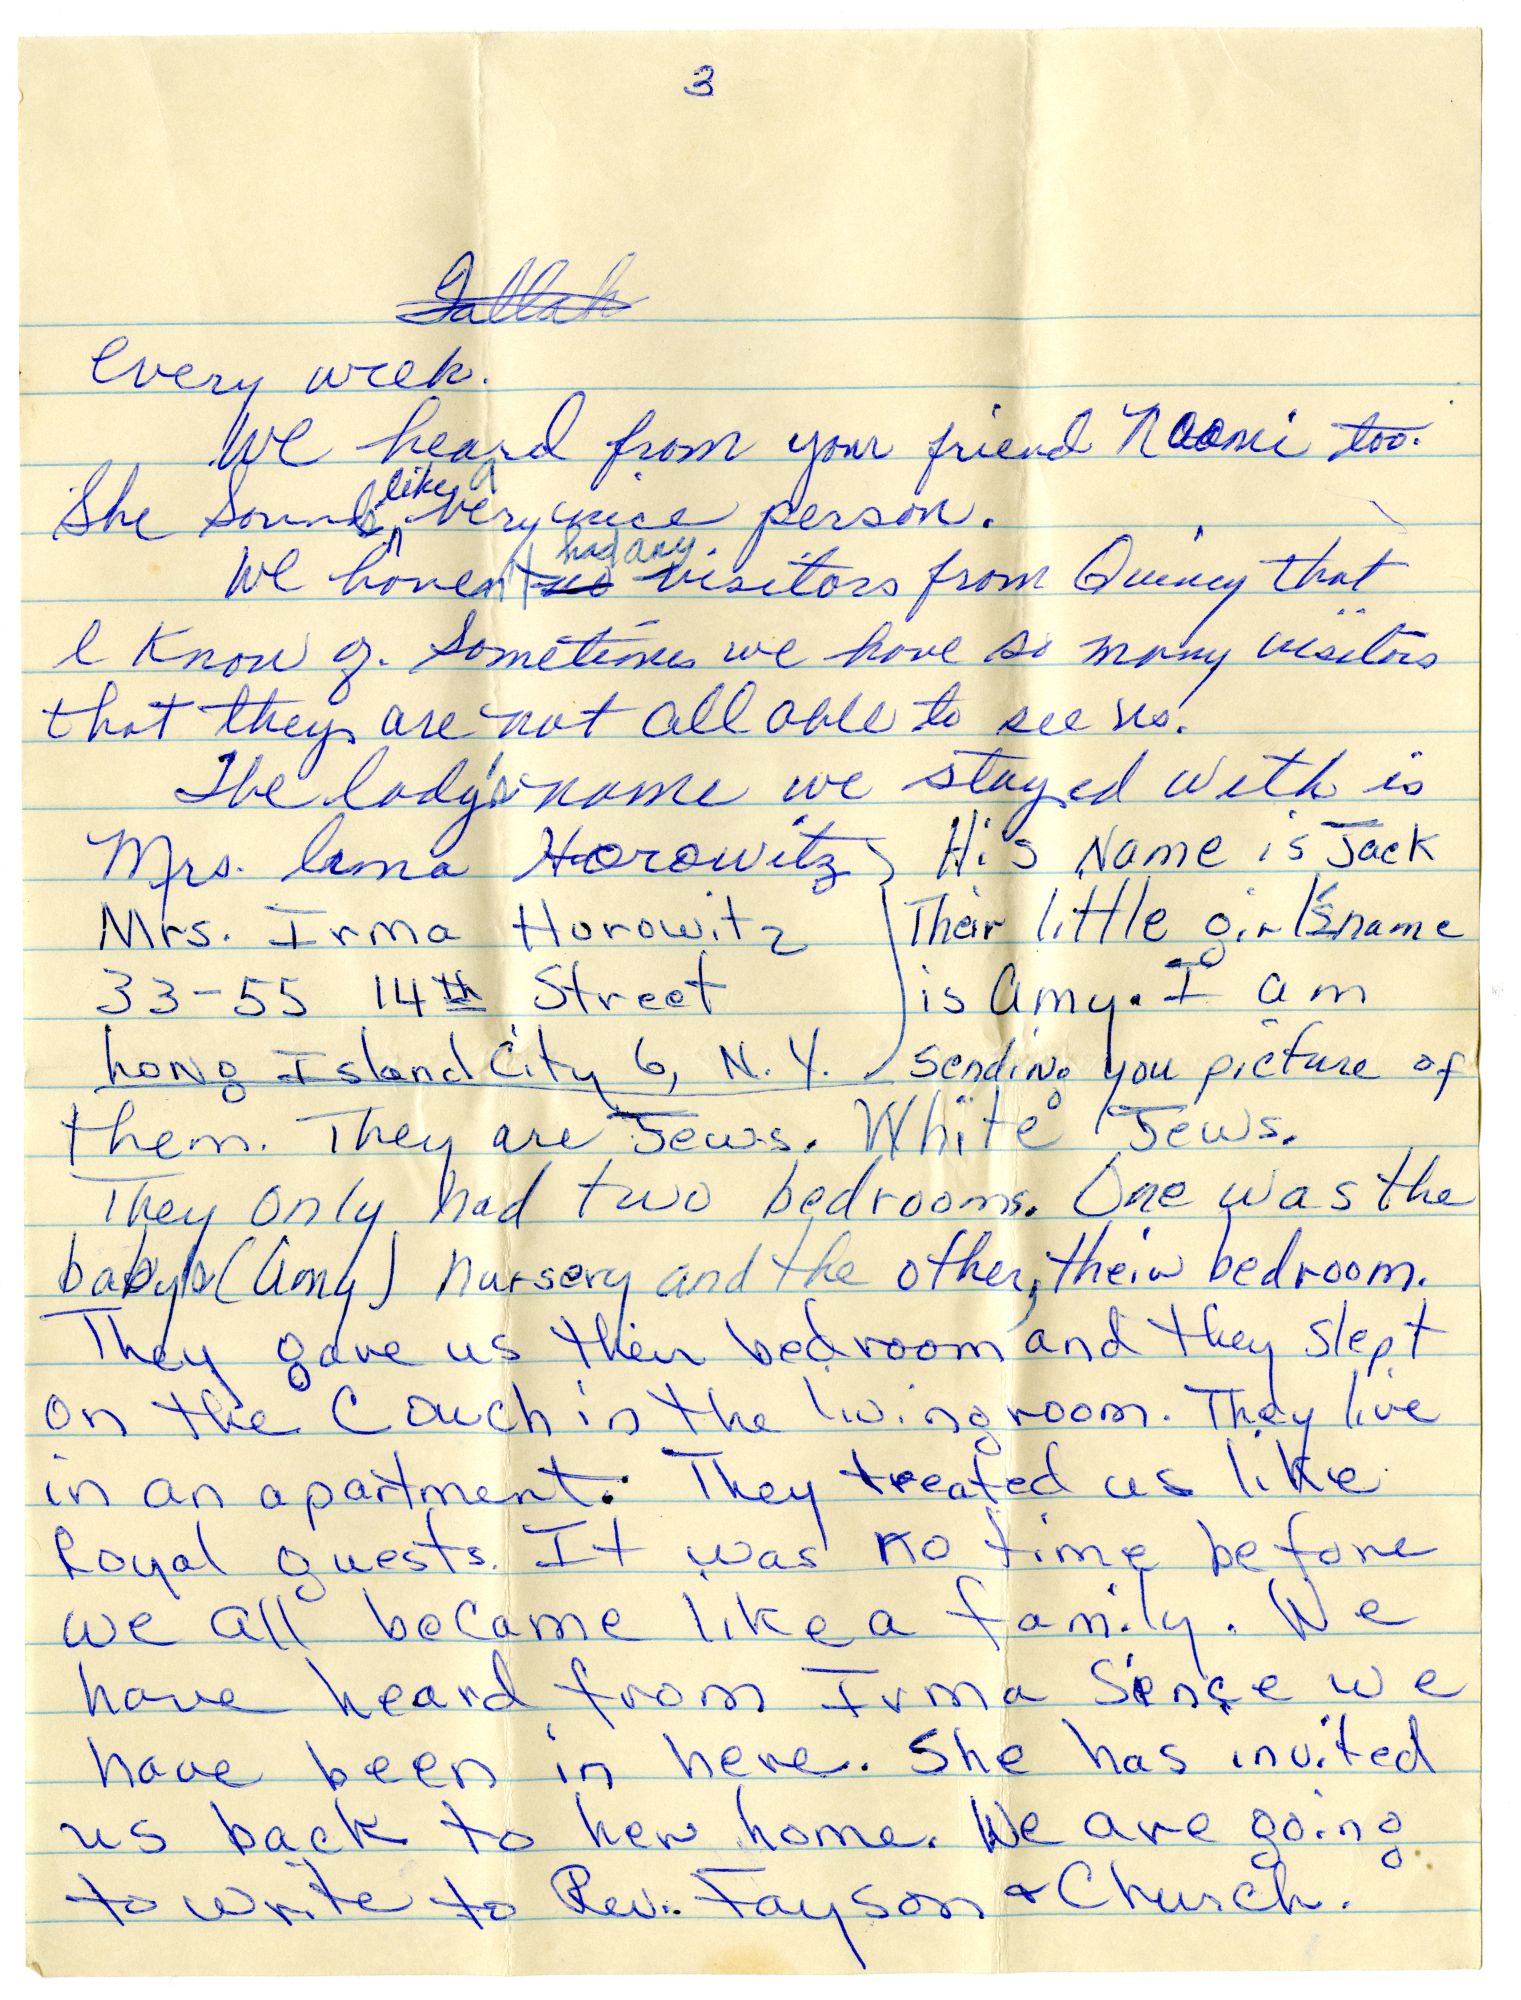 3
Tallah
every week.
We heard from your friend Naomi too.
She Sounds like a very nice person.
We haven't no had any visitors from Quincy that
I Know of. Sometimes we have so many visitors
that they are not all able to see us.
The lady's name we stayed with is
Mrs. Irma Horowitz
Mrs. Irma Horowitz
33-55 14th Street
Long Island City 6, N.Y.
His Name is Jack
Their little girl's name
is Amy. I am
sending you picture of
them. They are Jews. White Jews.
They only had two bedrooms. One was the
baby's (Amy) nursery and the other, their bedroom.
They gave us their bedroom and they slept
on the Couch in the livingroom. They live
in an apartment. They treated us like
Royal guests. It was no time before
we all became like a family. We
have heard from Irma Since we
have been in here. She has invited
us back to her home. We are going
to write to Rev. Fayson & Church.